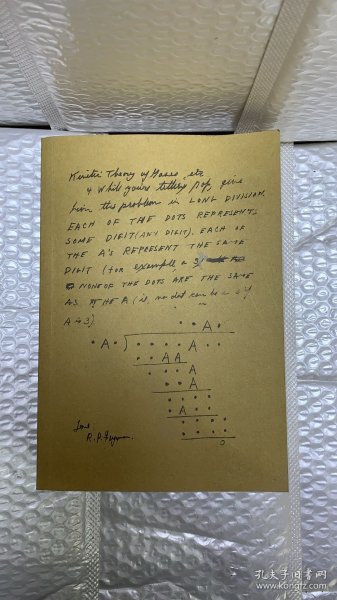 Kinetic Theory of Gases, etc
& While you're telling Pop, give
him this problem in LONG DIVISION.
EACH OF THE DOTS REPRESENTS
SOME DIGIT (ANY DIGIT). EACH OF
THE A'S REPRESENT THE SAME
DIGIT (for example, a 3)
NONE OF THE DOTS ARE THE SAME
AS THE A (ie, no dot can be a 3 if
A is 3)
• • A •
• A • ) • • • • A • •
• • A A
• • • A
• • A
• • • •
• A • •
• • • •
• • • •
0
Love
R. P. Feynman.
孔夫子旧书网
www.kongfz.com